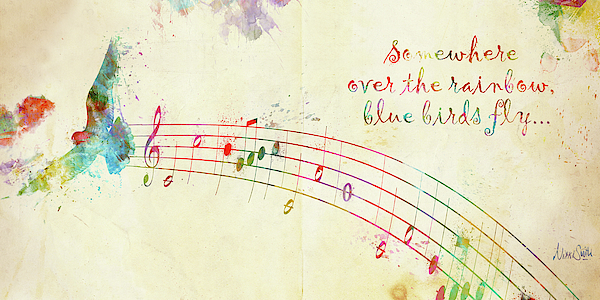 Somewhere
over the rainbow,
blue birds fly...